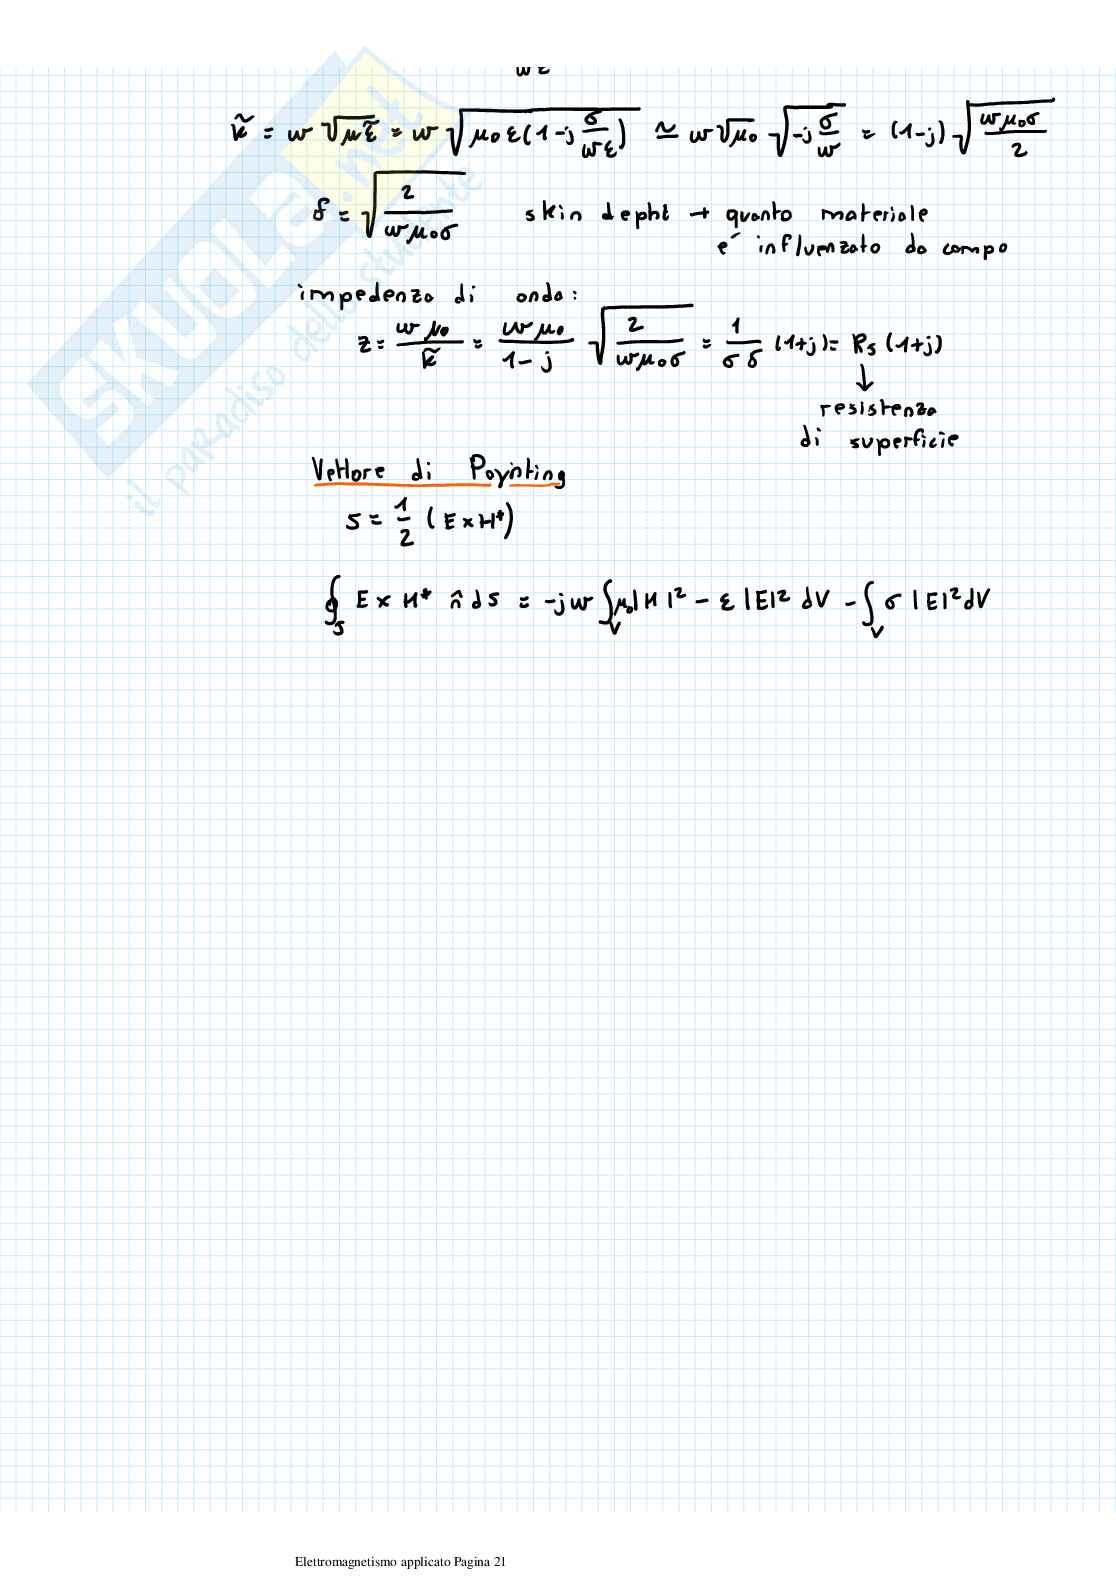 wε
k̃ = w √με̃ = w √μ₀ε(1-j σ/wε) ≃ w √μ₀ √-j σ/w = (1-j) √wμ₀σ/2
δ = √2/wμ₀σ skin depht → quanto materiale
e´ influenzato da campo
impedenza di onda:
z = wμ₀/k̃ = wμ₀/1-j √2/wμ₀σ = 1/σδ (1+j) = Rs (1+j)
↓
resistenza
di superficie
Vettore di Poynting
S = 1/2 (E×H*)
∮S E × H* n̂ dS = -jw ∫V μ₀|H|² - ε|E|² dV - ∫V σ|E|² dV
SKUOLA.net
il paradiso dello studente
Elettromagnetismo applicato Pagina 21